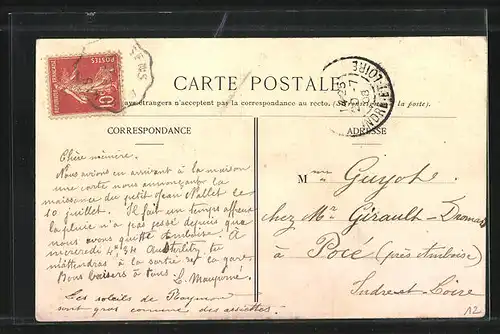 POSTES
10
CARTE POSTALE
pays étrangers n'acceptent pas la correspondance au recto, (Se renseigner à la poste).
CORRESPONDANCE
ADRESSE
Chère mémère.
Nous avons en arrivant à la maison
une carte nous annonçant la
naissance du petit Jean Nallet le
10 juillet. Il fait un temps affreux
la pluie n'a pas cessé depuis que
nous avons quitté Amboise. À
mercredi 4h 34 Austerlitz, te
m'attendras à la sortie sur la gare.
Bons baisers à tous.
Les soleils de
sont gros comme des assiettes.
Mme Guyot
chez Mr Girault-
à Pocé (près Amboise)
Indre-et-Loire
12